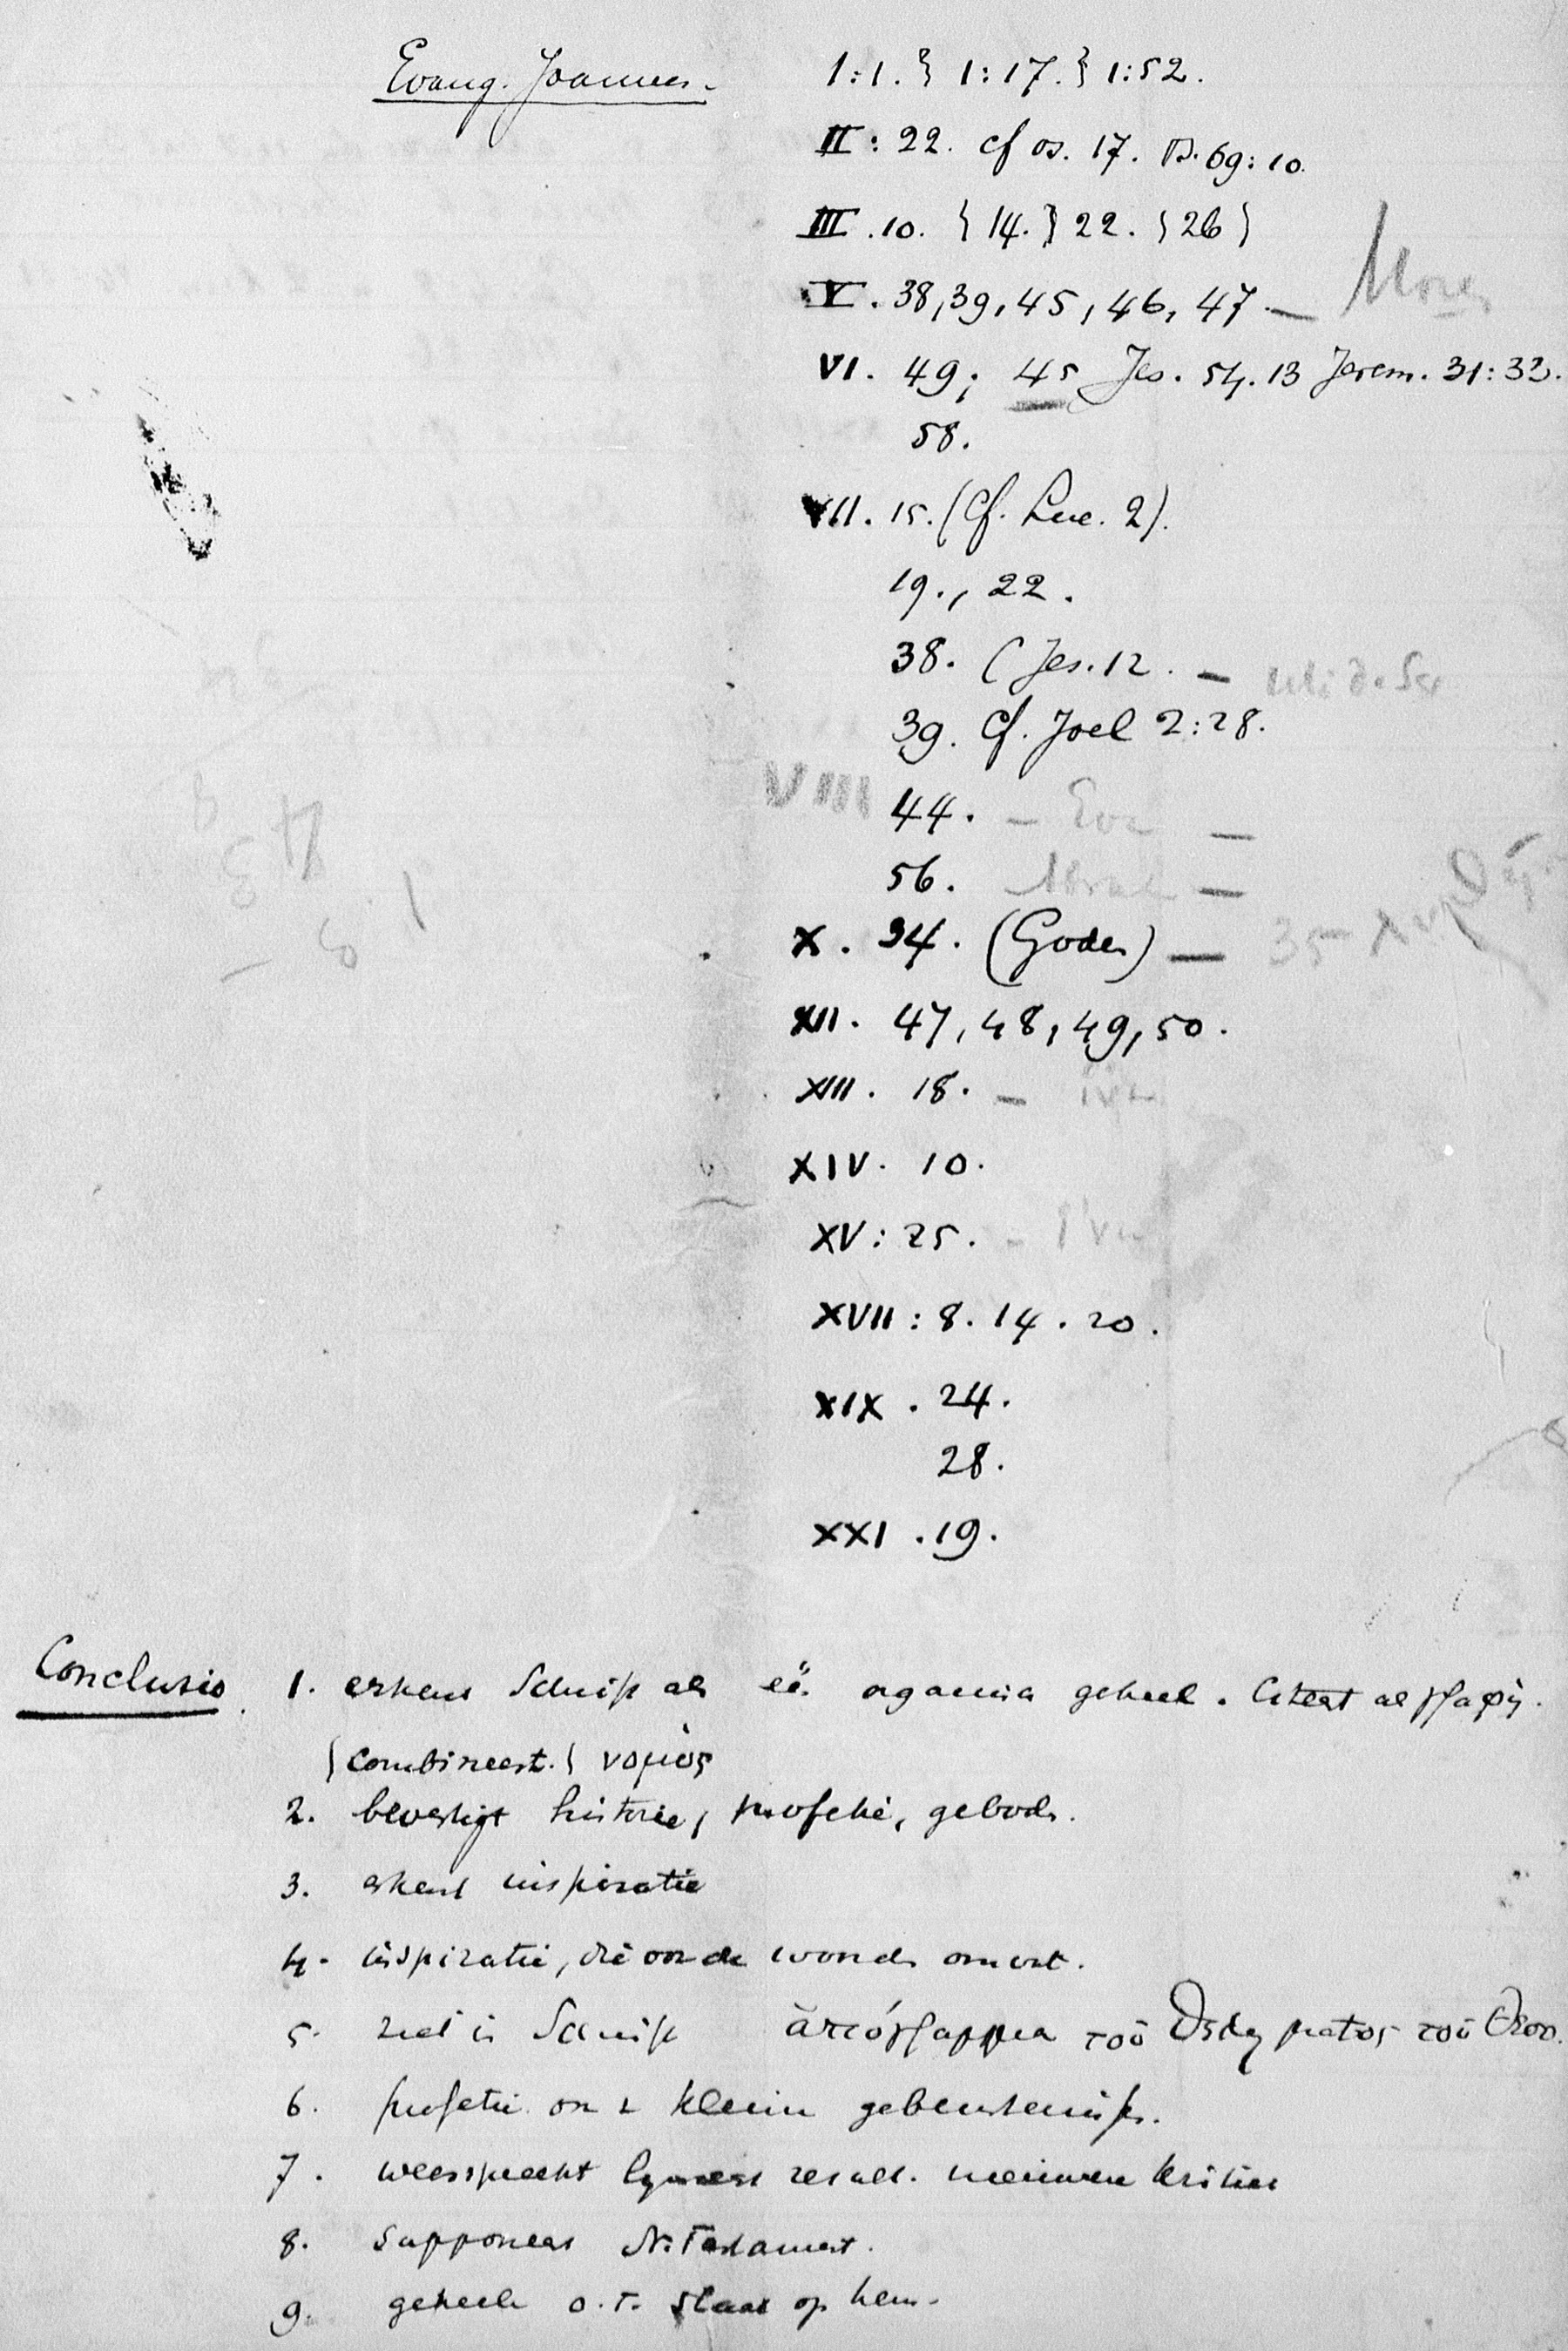 Evang. Joannes.
1:1. } 1:17. } 1:52.
II: 22. cf vs. 17. Ps. 69:10.
III. 10. } 14. } 22. } 26 }
V. 38, 39, 45, 46, 47 — Mozes
VI. 49; 45 Jes. 54.13 Jerem. 31:33.
58.
VII. 15. (Cf. Luc. 2).
19., 22.
38. (Jes. 12. —
39. Cf. Joel 2:28.
VIII 44. — Eva —
56. Abrah —
X. 34. (Goden) — 35
XII. 47, 48, 49, 50.
XIII. 18. — ἵνα
XIV. 10.
XV: 25. - ἵνα
XVII: 8. 14. 20.
XIX. 24.
28.
XXI. 19.
Conclusio. 1. erkent Schrift als één geheel. Citeert als γραφή.
{combineert.} νομος
2. bevestigt historie, profetie, gebods.
3. erkent inspiratie
4. inspiratie, die ook de woorden omvat.
5. ziet in Schrift ἀπόγραμμα τοῦ θελήματος τοῦ Θεου.
6. profetie klein gebeurtenis.
7. weerspreekt result. nieuwere kritiek
8. supponeert N. Testament.
9. geheele O.T. slaat op hem.